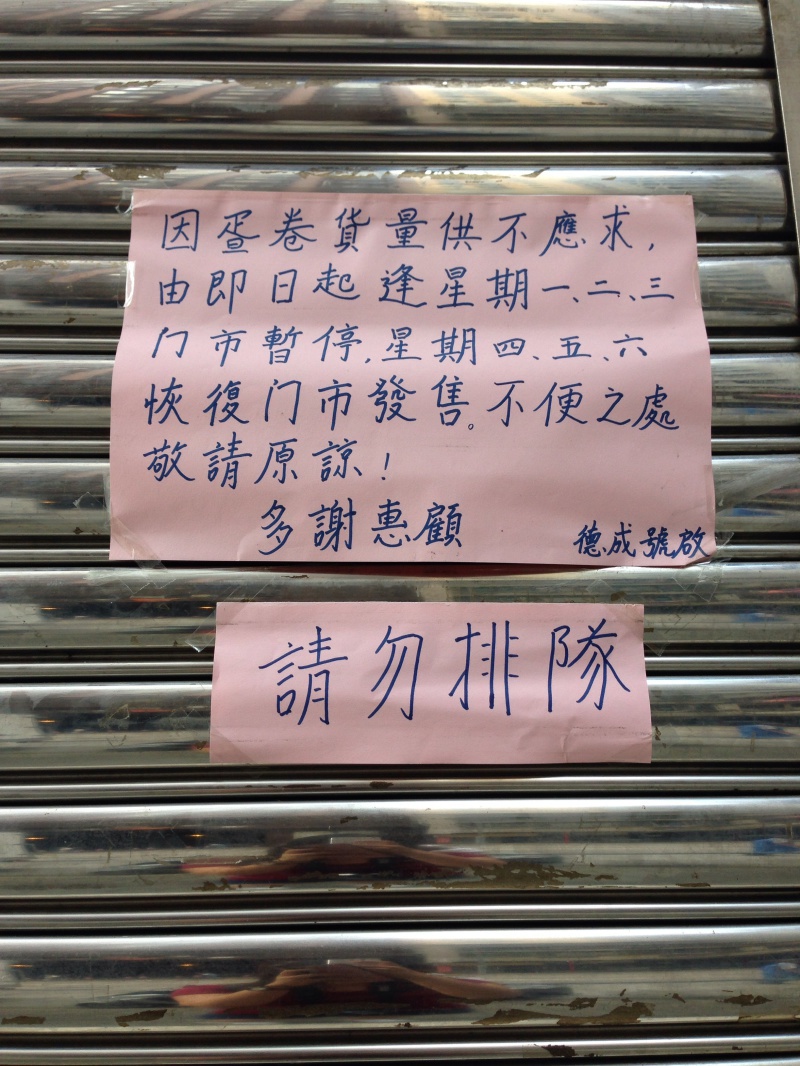 因蛋卷貨量供不應求，
由即日起逢星期一、二、三
门市暫停，星期四、五、六
恢復门市發售。不便之處
敬請原諒！
多謝惠顧
德成號啟
請勿排隊